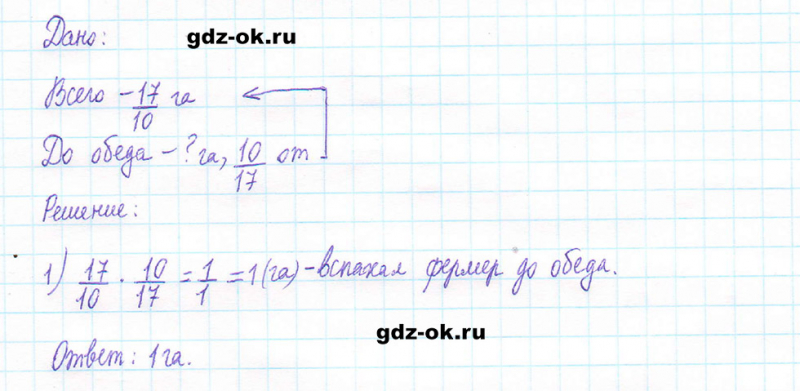 Дано:
gdz-ok.ru
Всего - 17/10 га
До обеда - ? га, 10/17 от
Решение:
1) 17/10 · 10/17 = 1/1 = 1 (га) - вспахал фермер до обеда.
gdz-ok.ru
Ответ: 1 га.